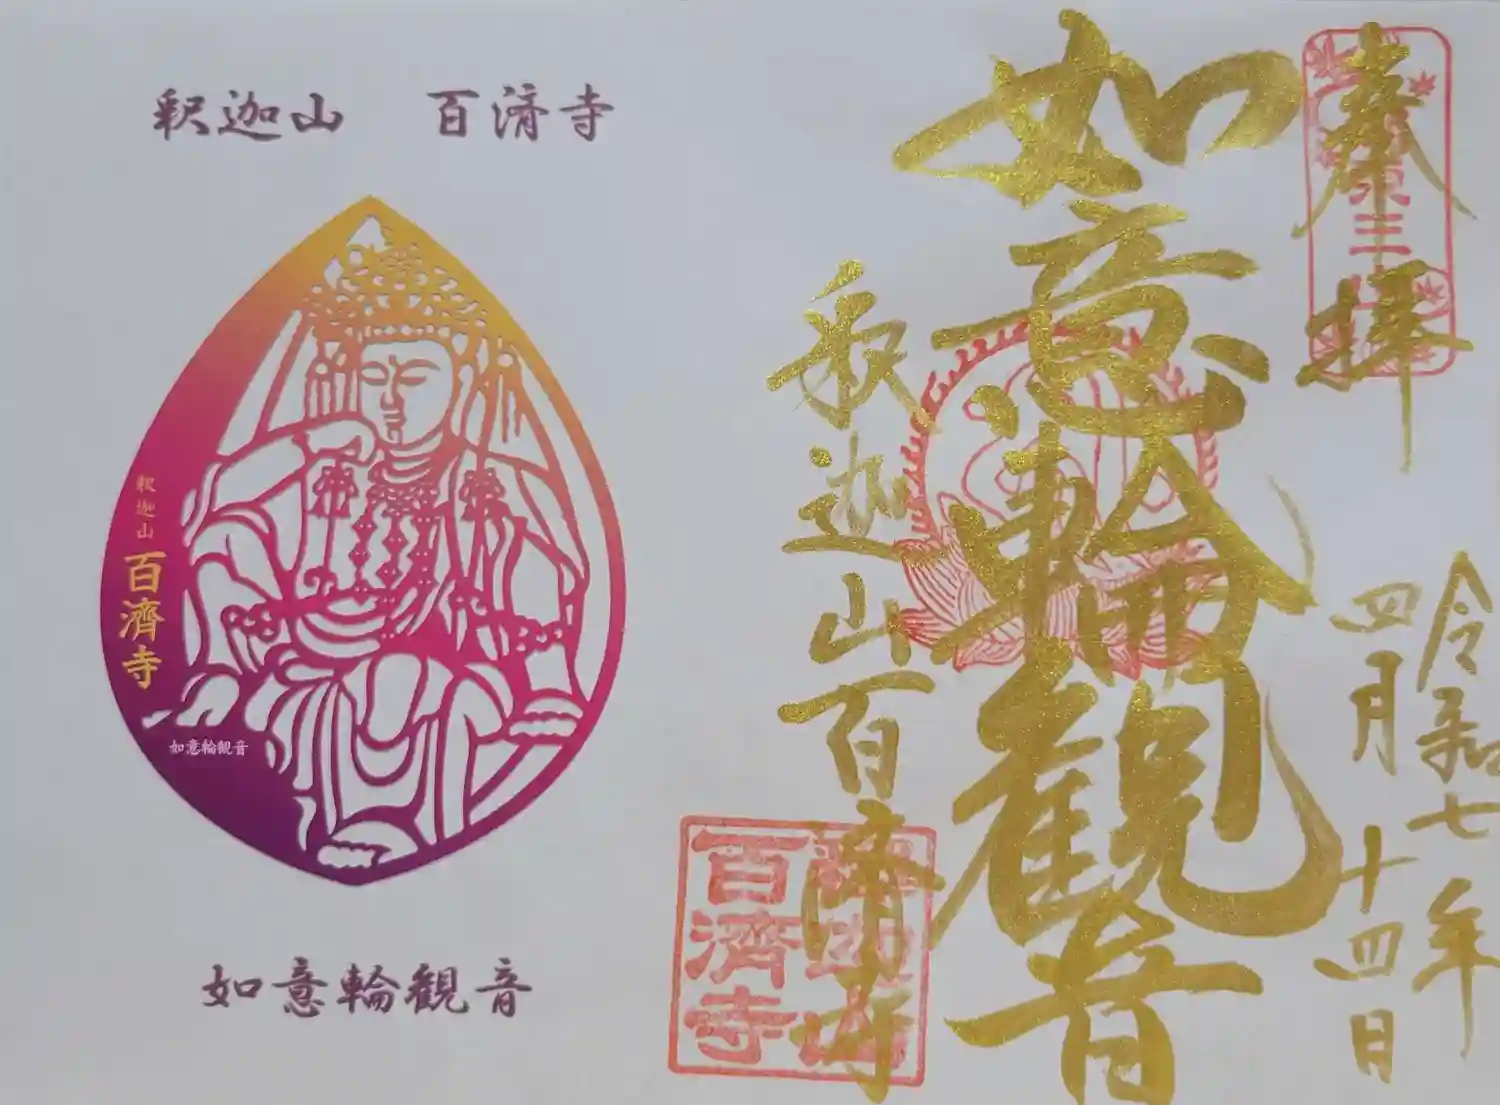 釈迦山 百済寺
釈迦山
百濟寺
如意輪観音
如意輪観音
奉拝
如意輪観音
釈迦山百済寺
令和七年
四月十四日
百濟寺